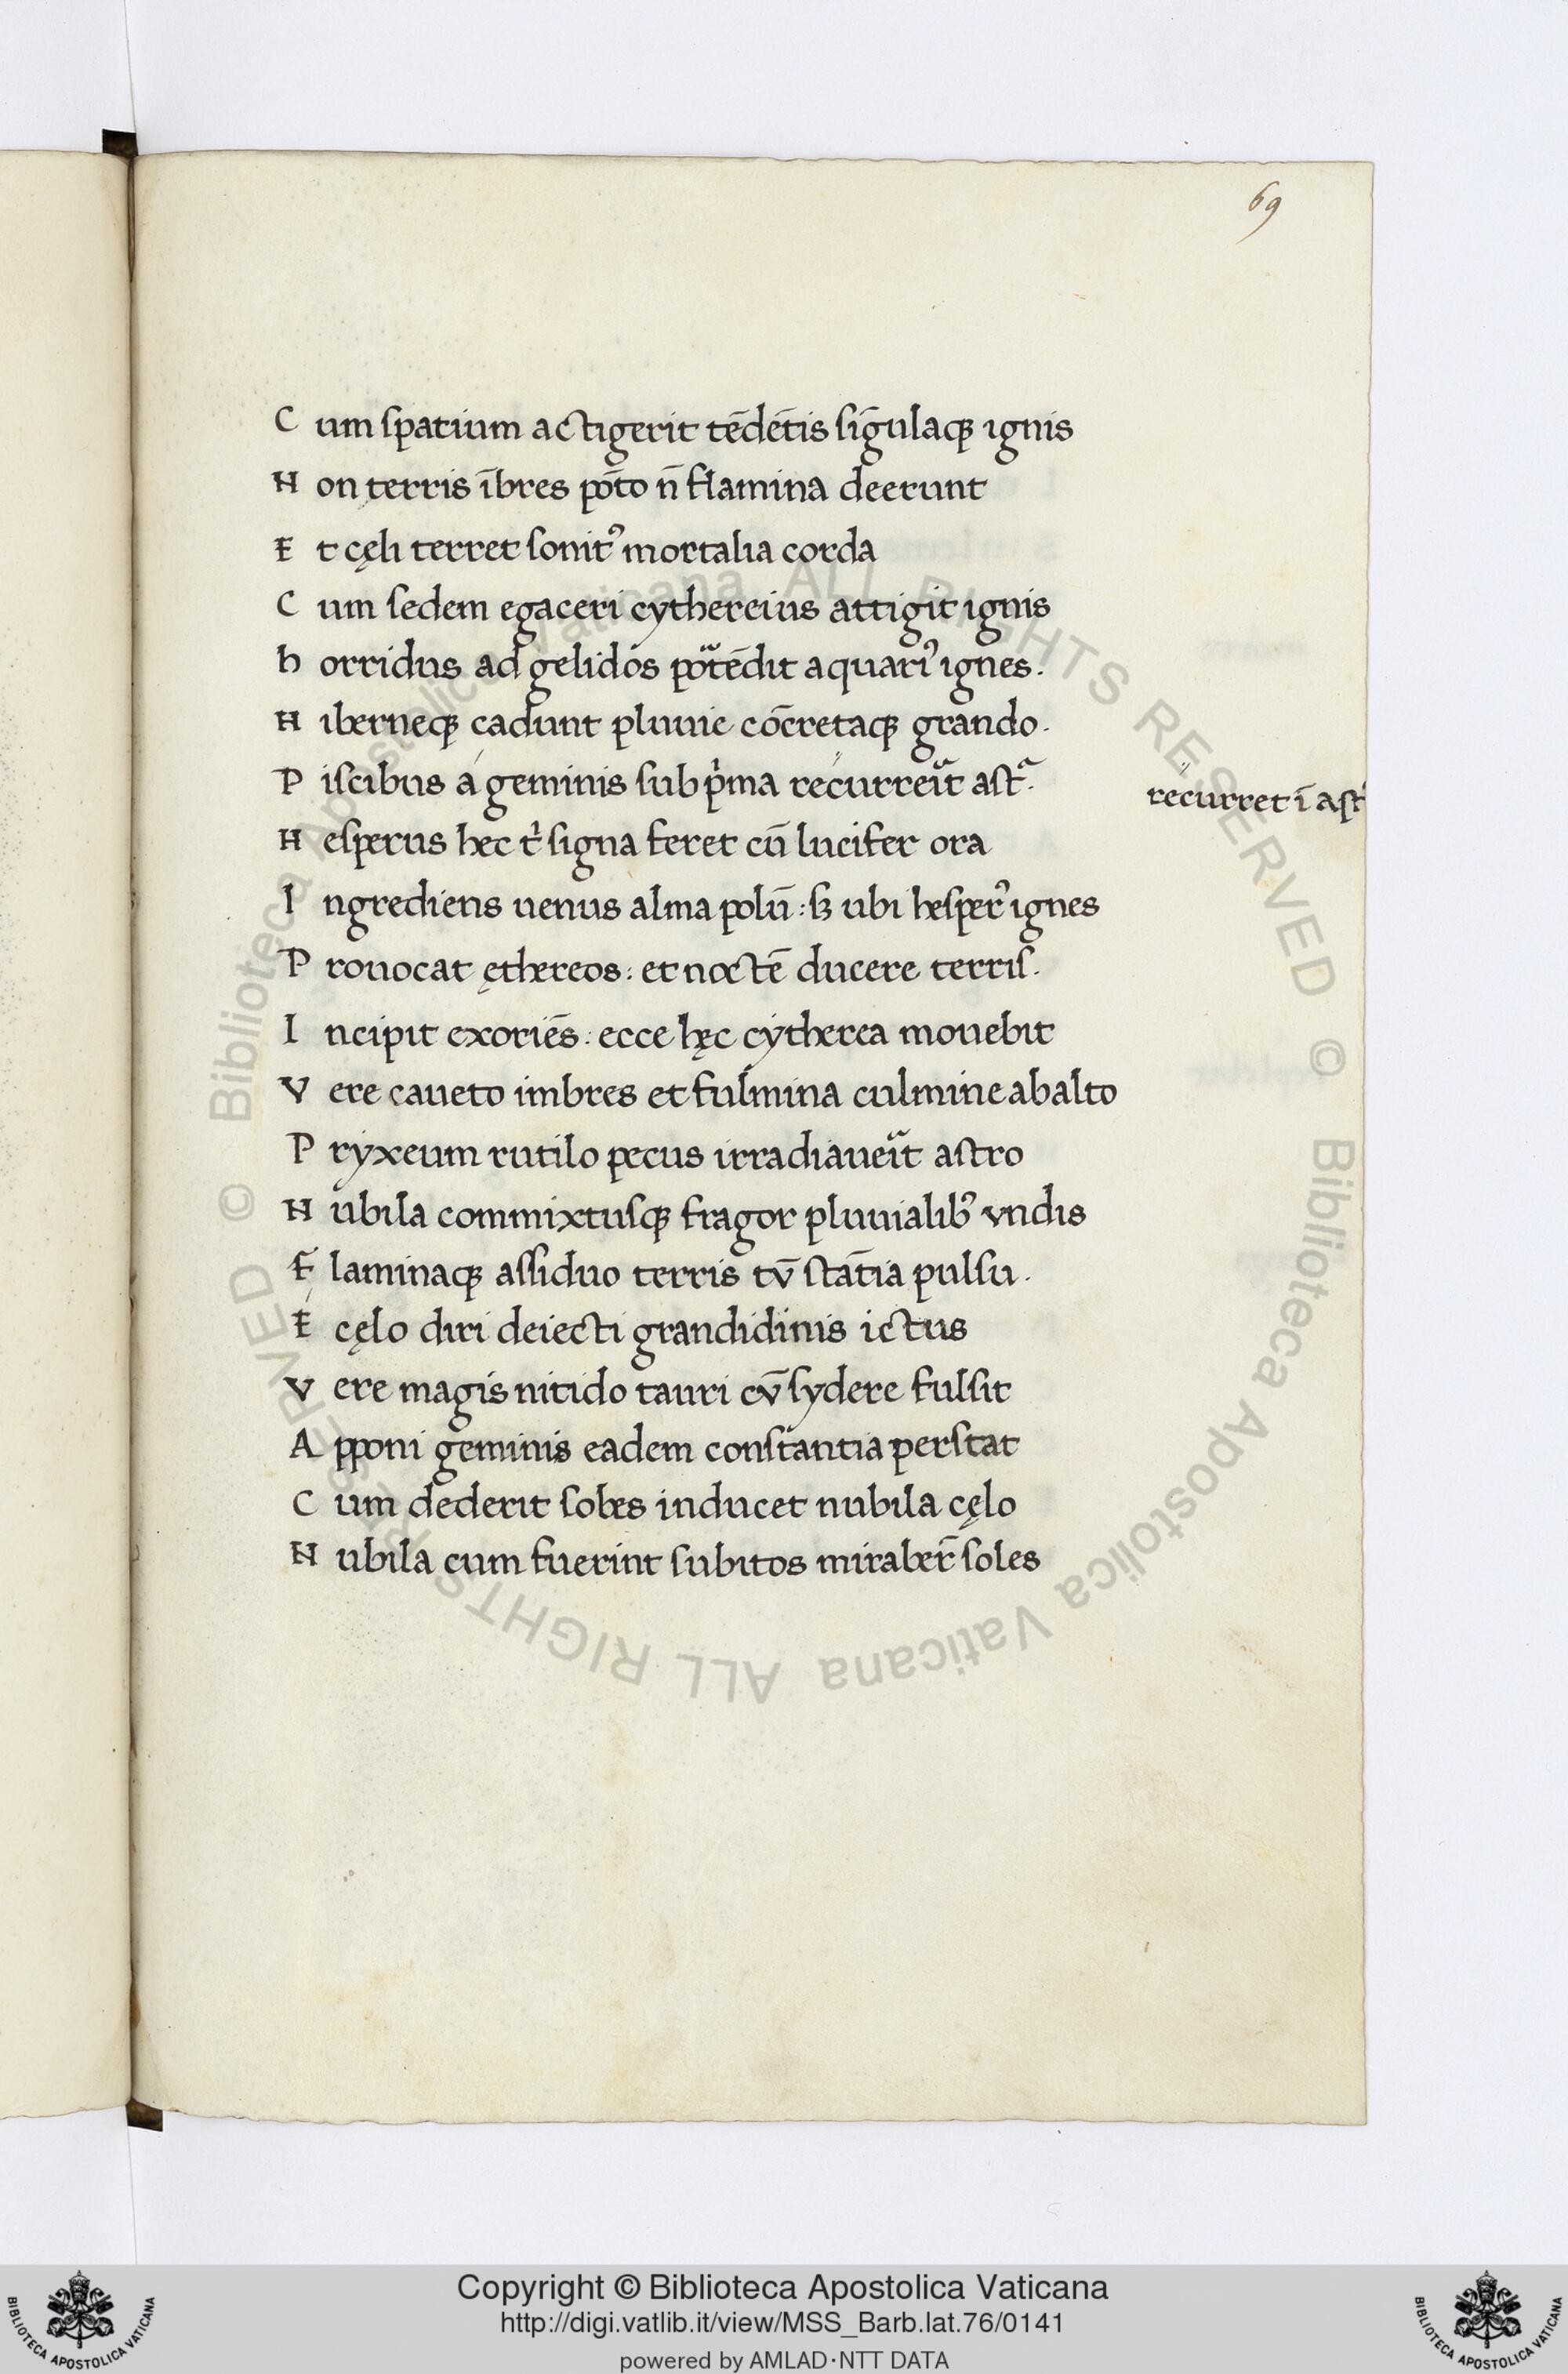 69
Cum ſpatium actigerit tēdētis ſīgulaqꝫ ignis
Non terris ībres pōto n̄ flamina deerunt
Et cęli terret ſonitꝰ mortalia corda
Cum ſedem egaceri cythereius attigit ignis
horridus ad gelidos potͣēdit aquariꝰ ignes.
Niberneqꝫ cadunt pluuie cōcretaqꝫ grando.
Piſcibus a geminis ſub pͥma recurreiͣt aſtͣ.
recurret ī aſt
Neſperus hec tͥ ſigna feret cū lucifer ora
Ingrediens uenus alma polū : sꝫ ubi heſperꝰ ignes
Prouocat ęthereos : et noctē ducere terriſ.
Incipit exoriēs : ecce hęc cytherea mouebit
Vere caueto imbres et fulmina culmine ab alto
Pryxeum rutilo pecus irradiaueiͣt aſtro
Nubila commixtuſqꝫ fragor pluuialibꝰ vndis
Flaminaqꝫ aſſiduo terris tv̄ ſtātia pulſu.
E cęlo diri deiecti grandidinis ictus
Vere magis nitido tauri cv̄ ſydere fulſit
Apponi geminis eadem conſtantia perſtat
Cum dederit ſoles inducet nubila cęlo
Nubila cum fuerint ſubitos miraber̄ ſoles
Copyright © Biblioteca Apostolica Vaticana
http://digi.vatlib.it/view/MSS_Barb.lat.76/0141
powered by AMLAD·NTT DATA
BIBLIOTECA APOSTOLICA VATICANA
BIBLIOTECA APOSTOLICA VATICANA
© Biblioteca Apostolica Vaticana ALL RIGHTS RESERVED © Biblioteca Apostolica Vaticana ALL RIGHTS RESERVED